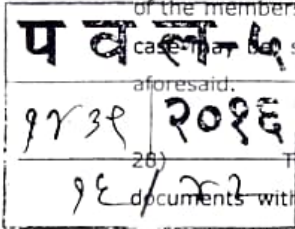 of the members
प व ल-५
case may be, s
aforesaid.
१४३९ २०१६
28) T
१६/४२
documents with